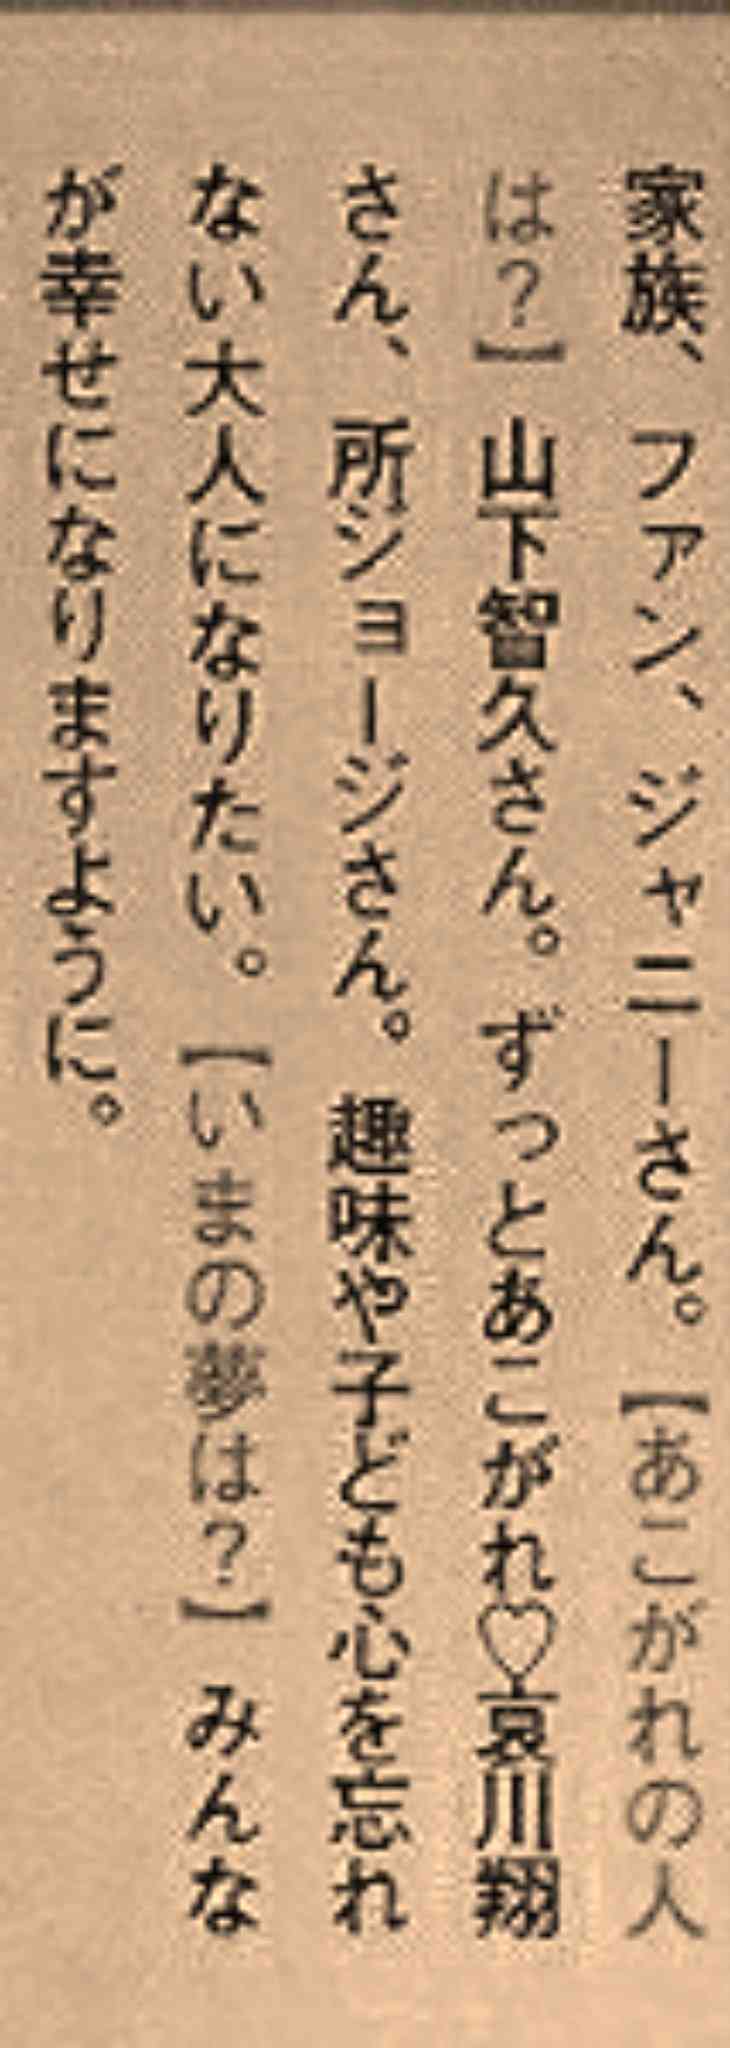 家族、ファン、ジャニーさん。【あこがれの人
は？】山下智久さん。ずっとあこがれ♡哀川翔
さん、所ジョージさん。趣味や子ども心を忘れ
ない大人になりたい。【いまの夢は？】みんな
が幸せになりますように。